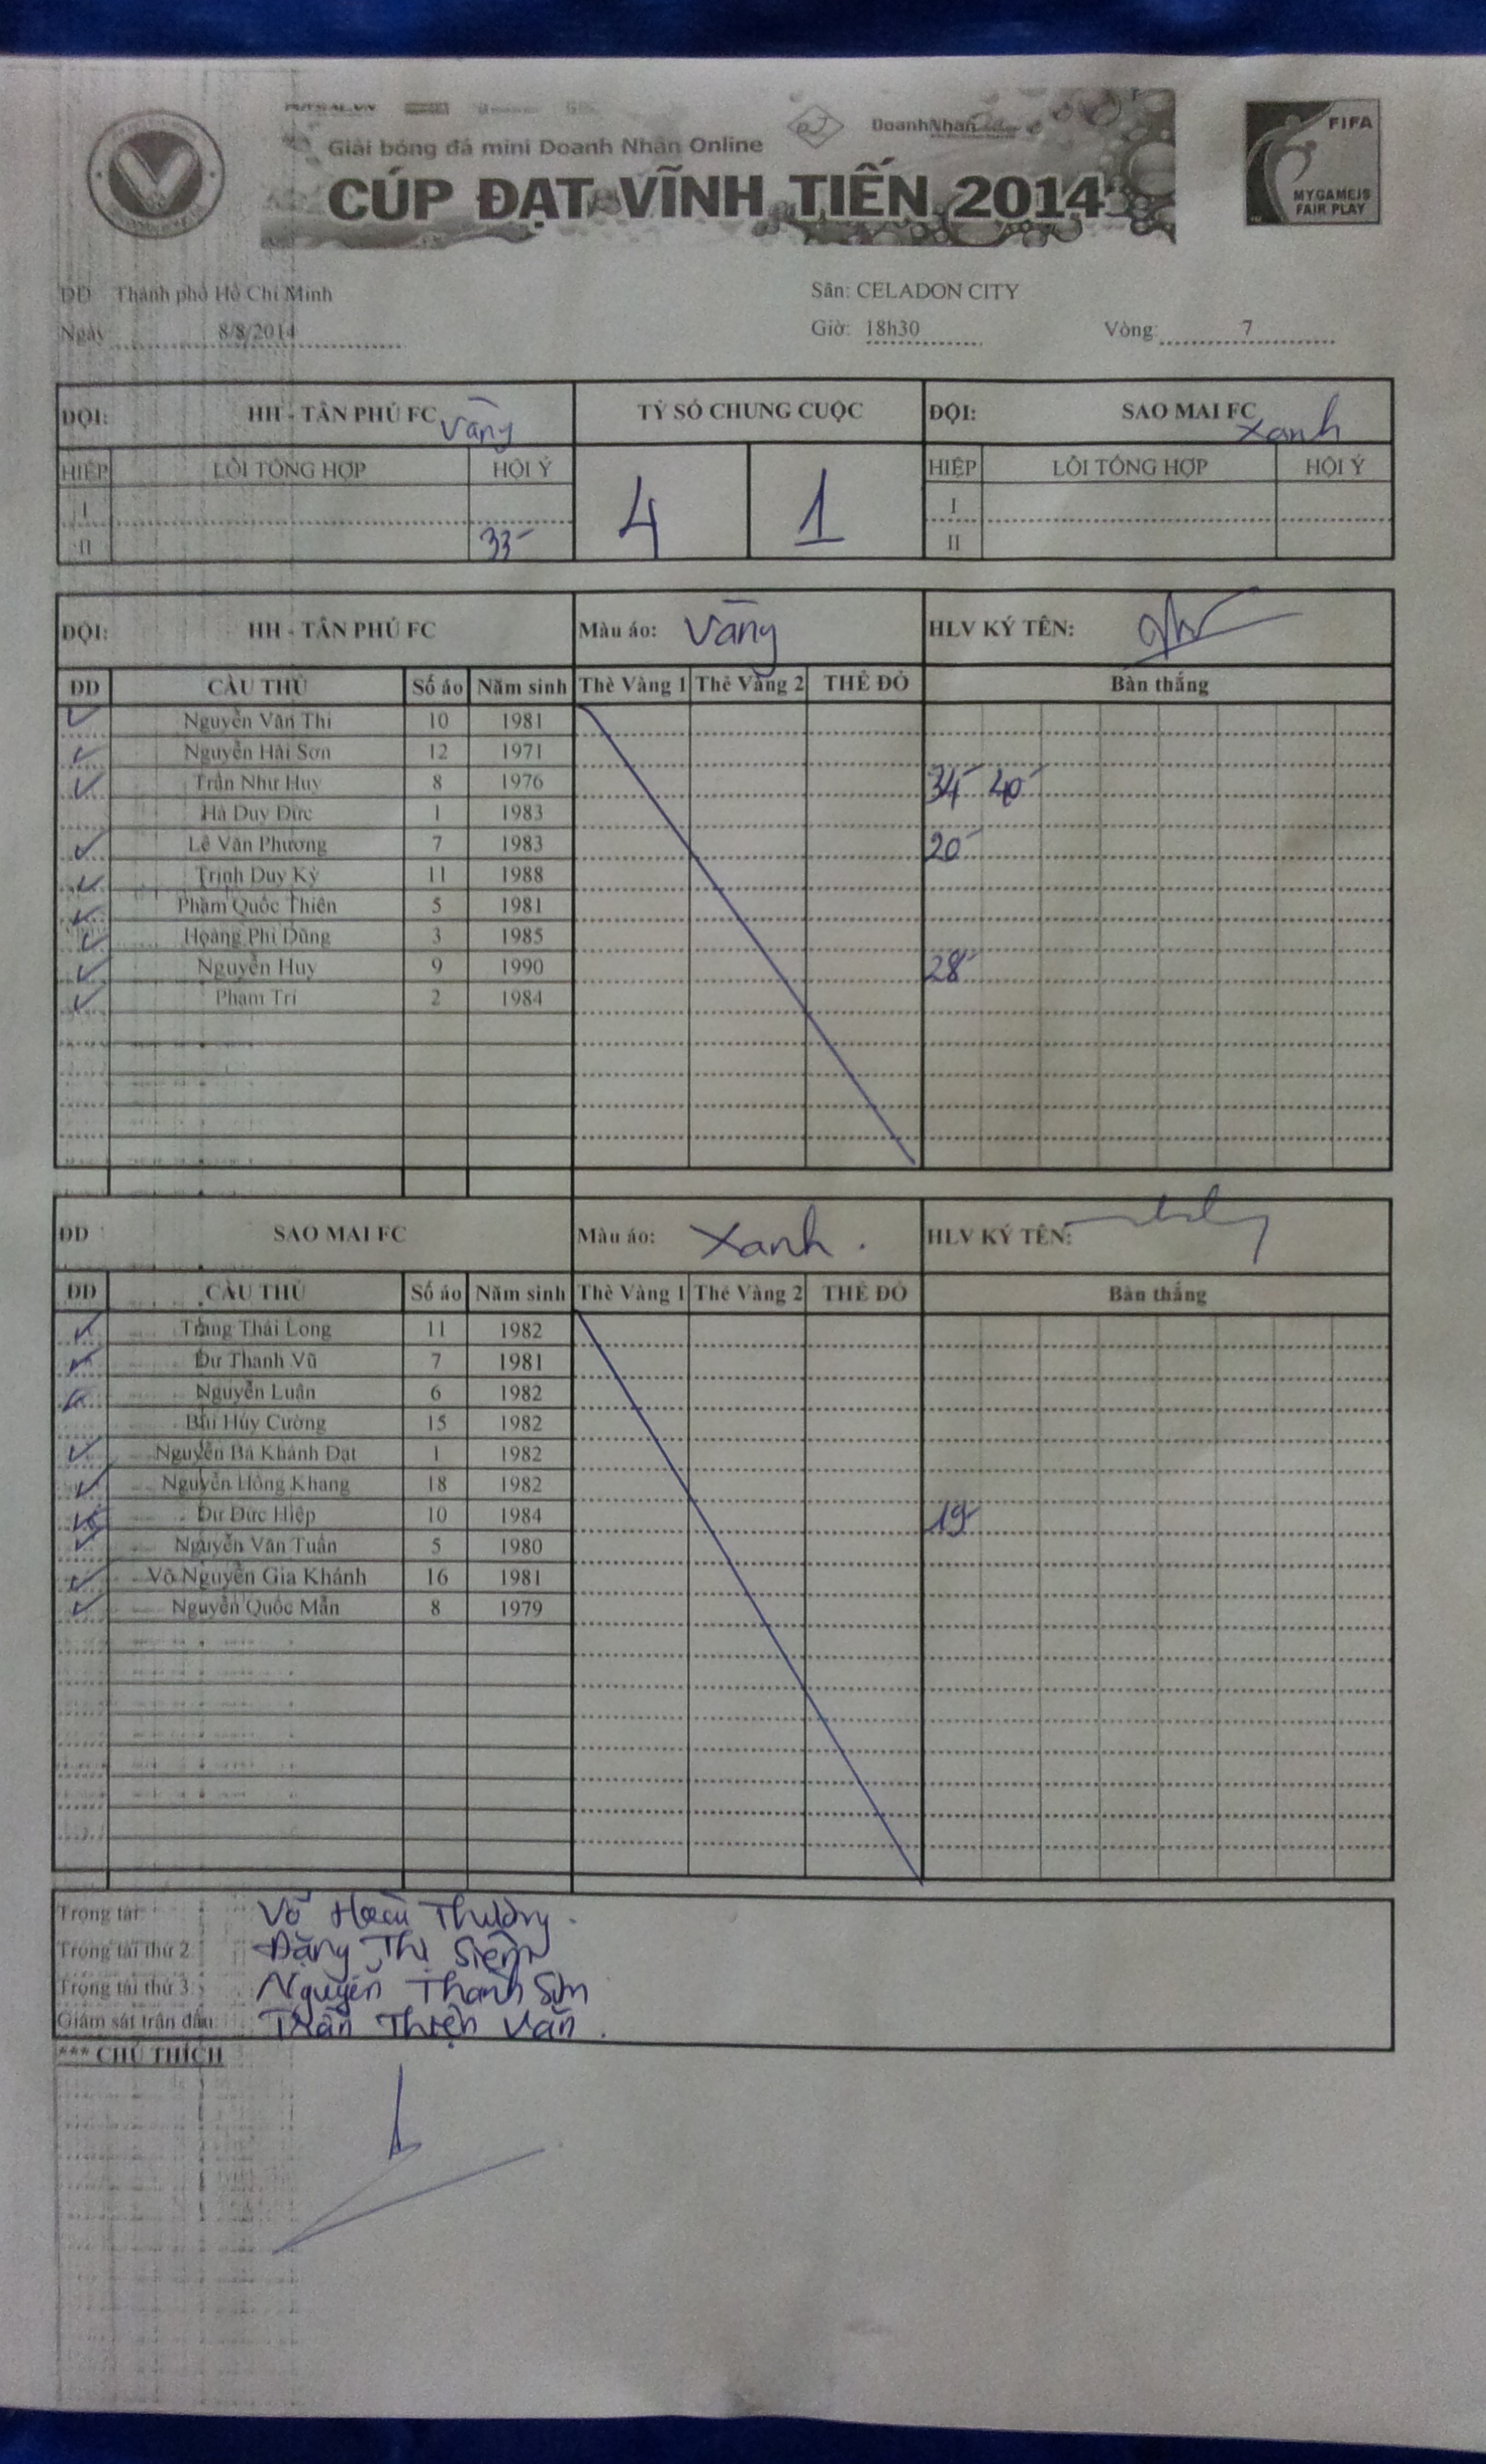 FUTSAL.VN
Giải bóng đá mini Doanh Nhân Online
DoanhNhân
CÚP ĐẠT VĨNH TIẾN 2014
FIFA
MY GAME IS
FAIR PLAY
ĐĐ Thành phố Hồ Chí Minh Sân: CELADON CITY
Ngày 8/8/2014 Giờ: 18h30 Vòng: 7
ĐỘI: HH - TÂN PHÚ FC Vàng TỶ SỐ CHUNG CUỘC ĐỘI: SAO MAI FC Xanh
HIỆP LỖI TỔNG HỢP HỘI Ý 4 1 HIỆP LỖI TỔNG HỢP HỘI Ý
I I
II 33' II
ĐỘI: HH - TÂN PHÚ FC Màu áo: Vàng HLV KÝ TÊN:
ĐD CẦU THỦ Số áo Năm sinh Thẻ Vàng 1 Thẻ Vàng 2 THẺ ĐỎ Bàn thắng
Nguyễn Văn Thi 10 1981
Nguyễn Hải Sơn 12 1971
Trần Như Huy 8 1976 34' 40'
Hà Duy Đức 1 1983
Lê Văn Phương 7 1983 20'
Trịnh Duy Kỳ 11 1988
Phạm Quốc Thiên 5 1981
Hoàng Phi Dũng 3 1985
Nguyễn Huy 9 1990 28'
Phạm Trí 2 1984
ĐD SAO MAI FC Màu áo: Xanh. HLV KÝ TÊN:
ĐD CẦU THỦ Số áo Năm sinh Thẻ Vàng 1 Thẻ Vàng 2 THẺ ĐỎ Bàn thắng
Trang Thái Long 11 1982
Dư Thanh Vũ 7 1981
Nguyễn Luân 6 1982
Bùi Huy Cường 15 1982
Nguyễn Bá Khánh Đạt 1 1982
Nguyễn Hồng Khang 18 1982
Dư Đức Hiệp 10 1984 19'
Nguyễn Văn Tuấn 5 1980
Võ Nguyễn Gia Khánh 16 1981
Nguyễn Quốc Mẫn 8 1979
Trọng tài Võ Hoài Thương.
Trọng tài thứ 2: Đặng Thị Siêm
Trọng tài thứ 3: Nguyễn Thanh Sơn
Giám sát trận đấu: Trần Thiện Văn.
*** CHÚ THÍCH